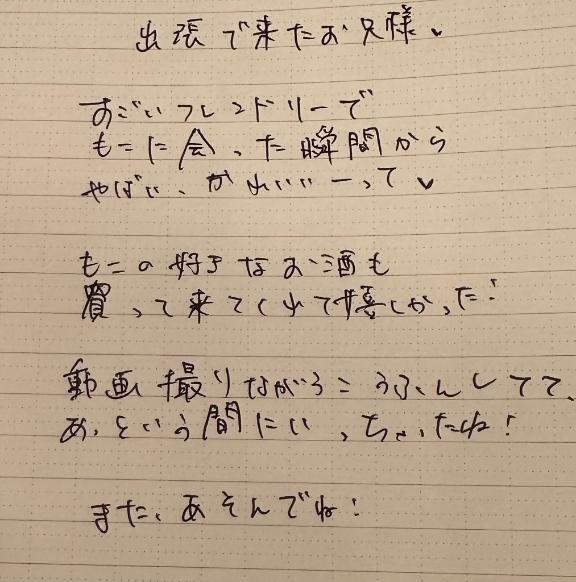 出張で来たお兄様♥
すごいフレンドリーで
もこに会った瞬間から
やばい、かわいいーって♥
もこの好きなお酒も
買って来てくれて嬉しかった!
動画撮りながらこうふんしてて、
あっという間にいっちゃったね!
また、あそんでね!